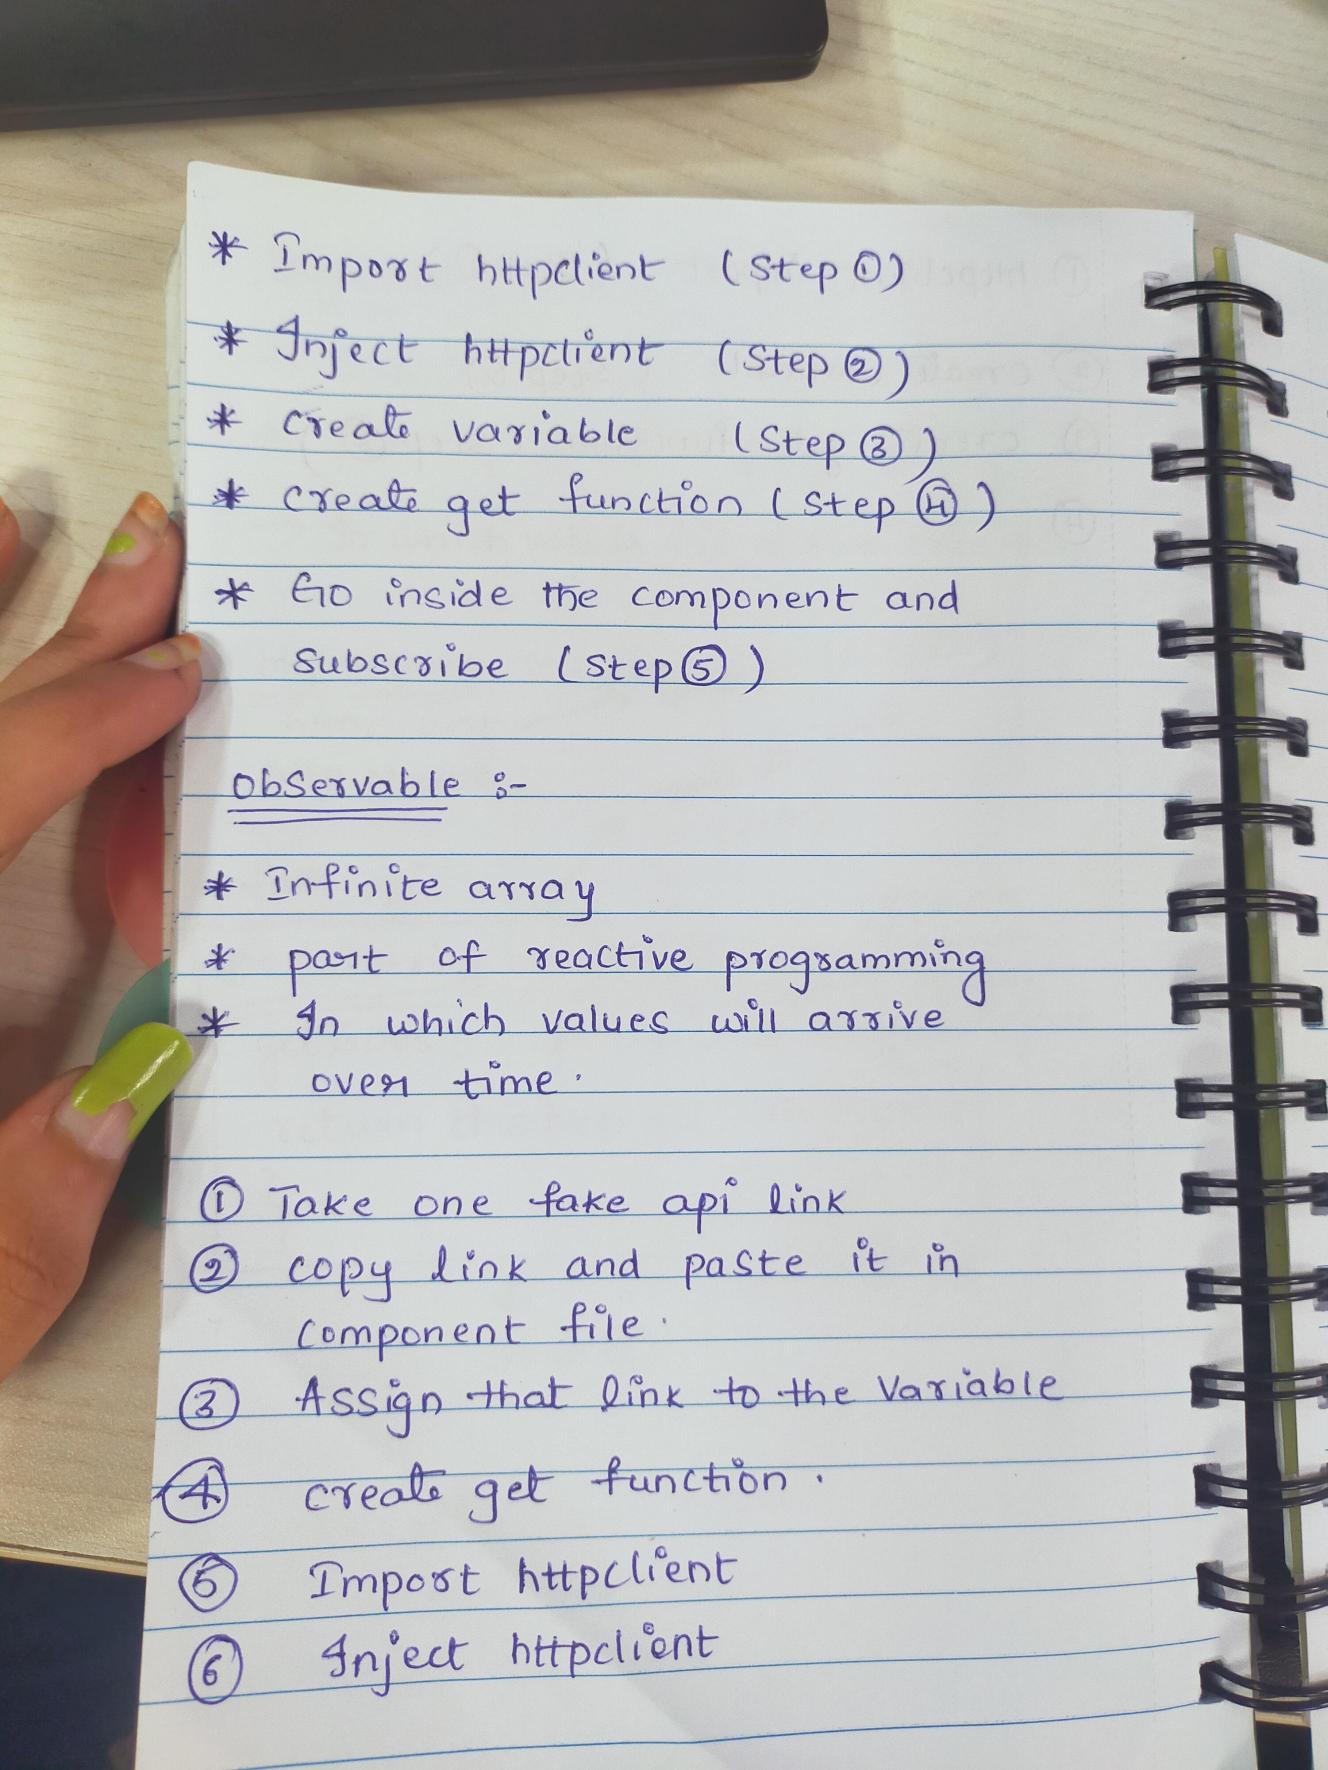 * Import httpclient (Step ①)
* Inject httpclient (Step ②)
* create variable (Step ③)
* create get function (Step ④)
* Go inside the component and
subscribe (Step ⑤)
Observable :-
* Infinite array
* part of reactive programming
* In which values will arrive
over time.
① Take one fake api link
② copy link and paste it in
component file.
③ Assign that link to the variable
④ create get function.
⑤ Import httpclient
⑥ Inject httpclient